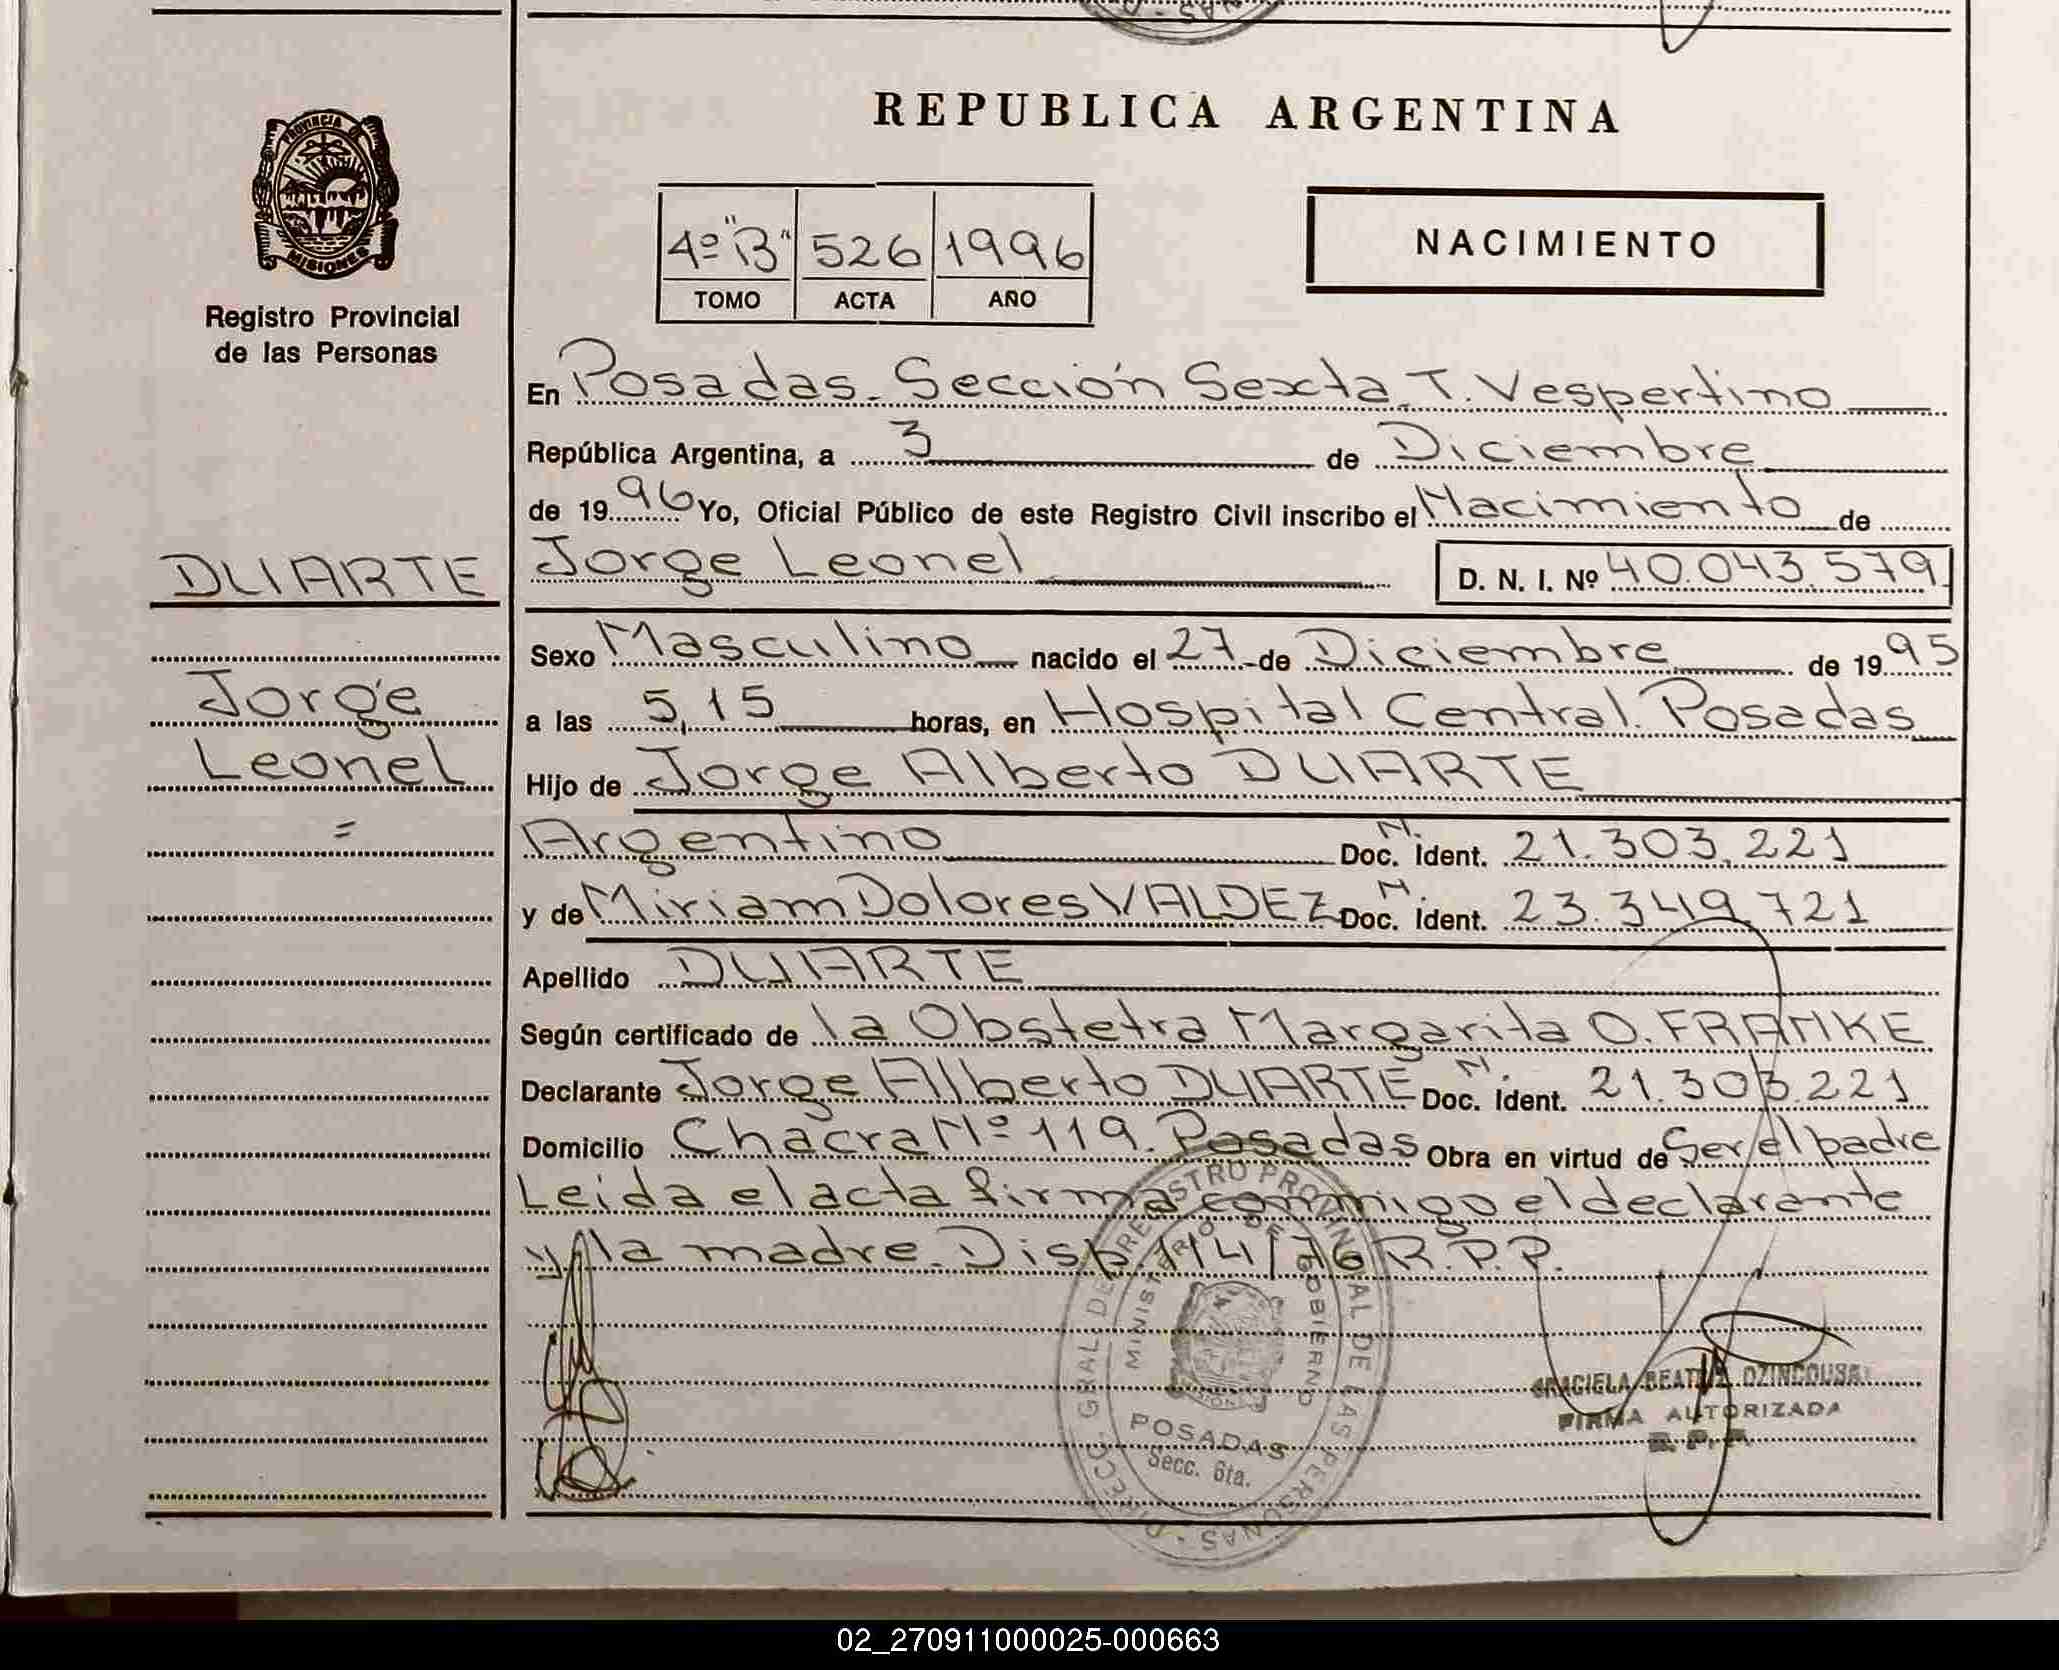 REPUBLICA ARGENTINA
PROVINCIA DE
MISIONES
Registro Provincial
de las Personas
4º "B" 526 1996
TOMO ACTA AÑO
NACIMIENTO
En Posadas. Sección Sexta. T. Vespertino
República Argentina, a 3 de Diciembre
de 1996 Yo, Oficial Público de este Registro Civil inscribo el Nacimiento de
DUARTE
Jorge Leonel D. N. I. Nº 40.043.579
Jorge
Leonel
=
Sexo Masculino nacido el 27 de Diciembre de 1995
a las 5,15 horas, en Hospital Central. Posadas
Hijo de Jorge Alberto DUARTE
Argentino Doc. N. Ident. 21.303.221
y de Miriam Dolores VALDEZ Doc. N. Ident. 23.349.721
Apellido DUARTE
Según certificado de la Obstetra Margarita O. FRANKE
Declarante Jorge Alberto DUARTE Doc. N. Ident. 21.303.221
Domicilio Chacra Nº 119. Posadas Obra en virtud de Ser el padre
Leida el acta firma conmigo el declarante
y la madre. Disp. 114/76 R.P.P.
DIRECC. GRAL. DE REGISTRO PROVINCIAL DE LAS PERSONAS
MINISTERIO DE GOBIERNO
POSADAS
Secc. 6ta.
GRACIELA BEATRIZ
FIRMA AUTORIZADA
R. P. P.
02_270911000025-000663